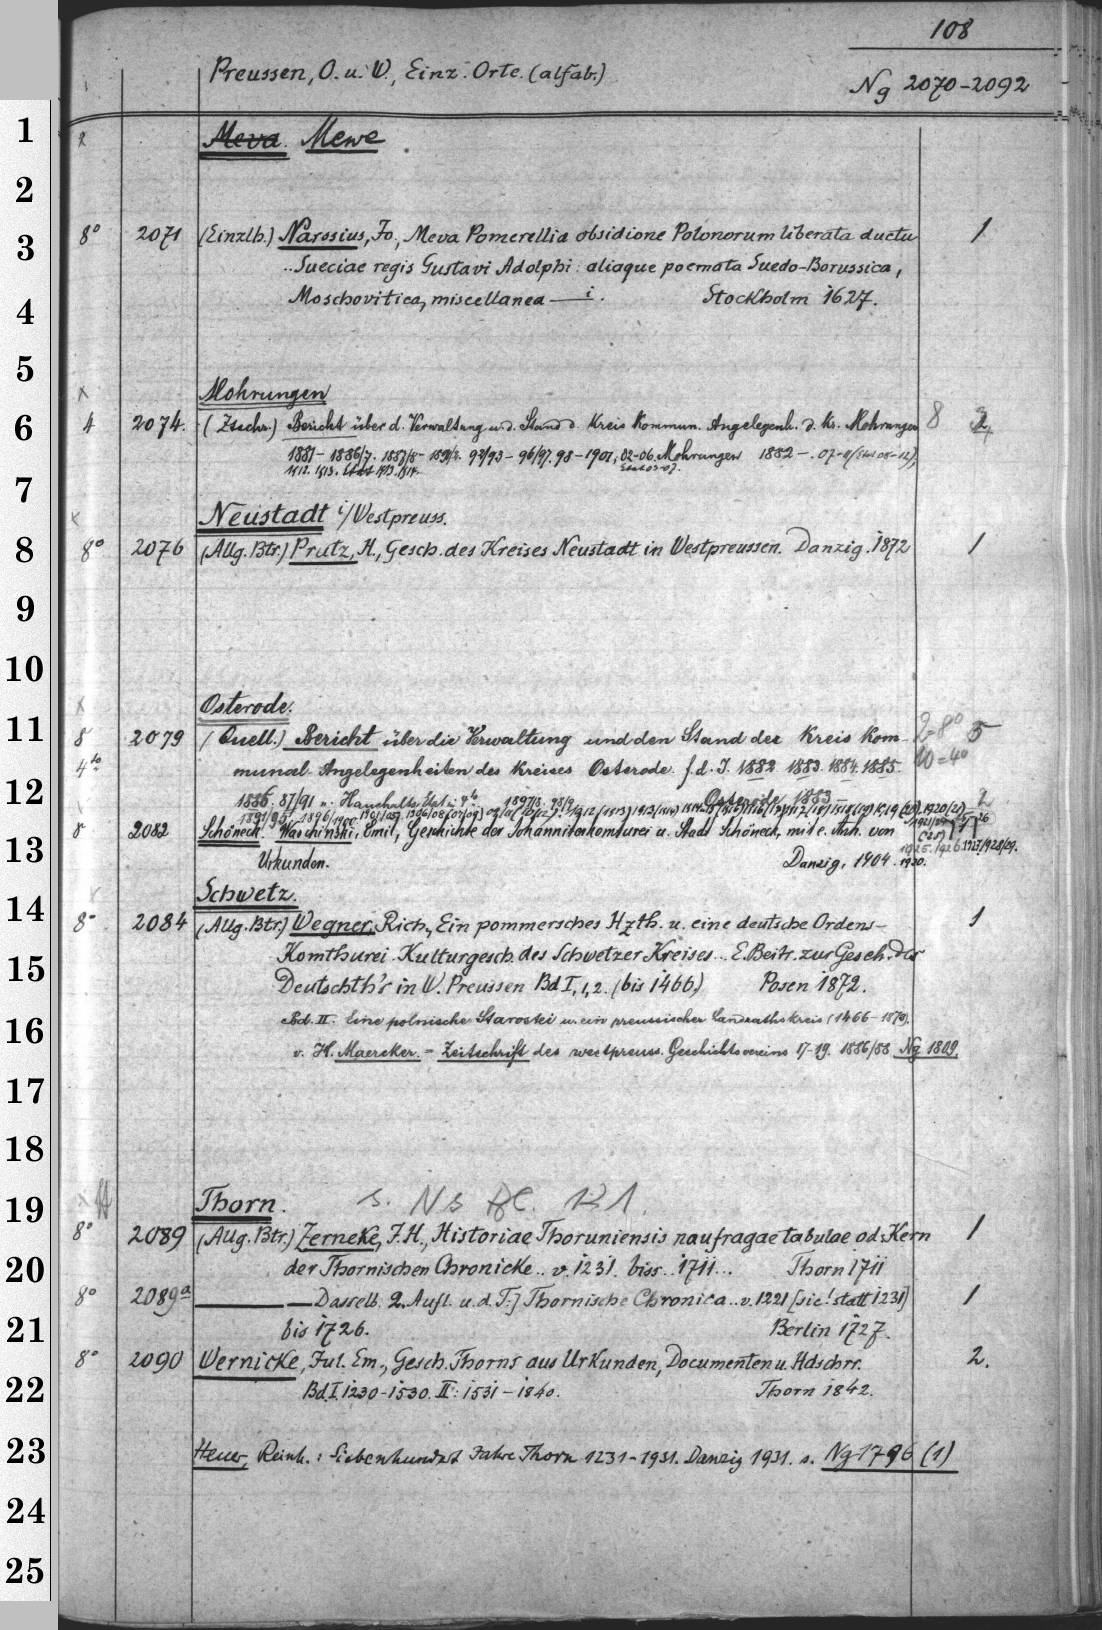 108
Preussen, O. u. W., Einz. Orte. (alfab.)
Ng 2070-2092
1 Meva. Mewe
2
3 8° 2071 (Einzlh.) Narssius, Jo., Meva Pomerellia obsidione Polonorum liberata ductu 1
..Sueciae regis Gustavi Adolphi: aliaque poemata Suedo-Borussica,
4 Moschovitica, miscellanea — i. Stockholm 1627.
5
x Mohrungen
6 4 2074. (Ztschr.) Bericht über d. Verwaltung u. d. Stand d. Kreis Kommun. Angelegenh. d. Kr. Mohrungen 8 2
1881-1886/7. 1887/8- 1891/2. 92/93-96/97. 98-1901, 02-06. Mohrungen 1882-. 07-
7
x Neustadt i/Westpreuss.
8 8° 2076 (Allg. Btr.) Prutz, H., Gesch. des Kreises Neustadt in Westpreussen. Danzig. 1872 1
9
10
x Osterode.
11 8° 2079 (Quell.) Bericht über die Verwaltung und den Stand der Kreis Kom- 2-8° 5
4to munal. Angelegenheiten des Kreises Osterode. f. d. J. 1882 1883. 1884. 1885. 10=4°
12 1886. 87/91 u. Haushalts-Etat i. 4to 1897/8. 98/9. Osterode, 1883
8° 2082 Schöneck. Waschinski, Emil, Geschichte der Johanniterkomturei u. Stadt Schöneck, mit e. Anh. von
13 Urkunden. Danzig, 1904. 1927/1928/29.
Schwetz.
14 8° 2084 (Allg. Btr.) Wegner, Rich., Ein pommersches Hzth. u. eine deutsche Ordens- 1
15 Komthurei. Kulturgesch. des Schwetzer Kreises.. E. Beitr. zur Gesch. des
Deutschth's in W. Preussen Bd I, 1, 2. (bis 1466.) Posen 1872.
16 Bd. II. Eine polnische Starostei u. ein preussischer Landrathskreis (1466-1873).
v. H. Maercker. = Zeitschrift des westpreuss. Geschichtsvereins 17-19. 1886/88 Ng 1809.
17
18
19 x Thorn. s. Ns
8° 2089 (Allg. Btr.) Zerneke, J. H., Historiae Thoruniensis naufragae tabulae od. Kern 1
20 der Thornischen Chronicke.. v. 1231. biss.. 1711... Thorn 1711
8° 2089a — — Dasselb. 2. Aufl. u. d. T:] Thornische Chronica.. v. 1221 [sic! statt 1231] 1
21 bis 1726. Berlin 1727.
8° 2090 Wernicke, Jul. Em., Gesch. Thorns aus Urkunden, Documenten u. Hdschrr. 2.
22 Bd. I. 1230-1530. II: 1531-1840. Thorn 1842.
23 Heuer, Reinh.: Siebenhundert Jahre Thorn 1231-1931. Danzig 1931. s. Ng 1796 (1)
24
25